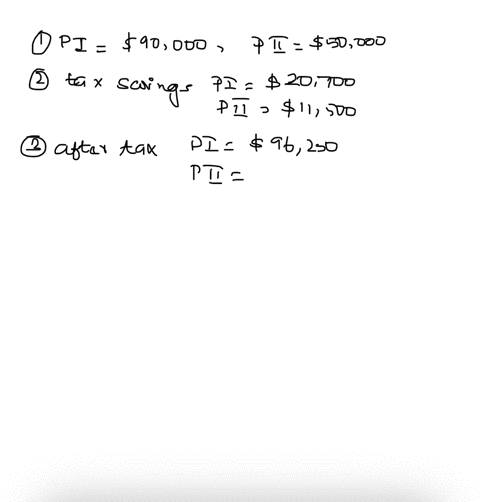 ① PI = $90,000, PII = $50,000
② tax savings PI = $20,700
PII = $11,500
③ after tax PI = $96,250
PII =